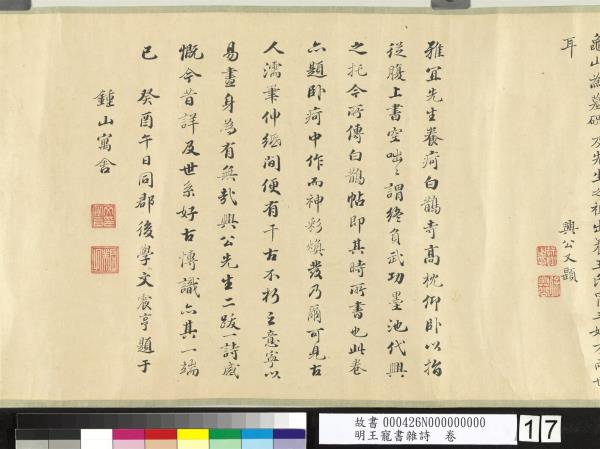 耳
興公又題
雅宜先生養疴白鵲寺高枕仰卧以指
從腹上書空咄〻謂終負武功墨池代興
之托今所傳白鵲帖即其時所書也此卷
亦題卧疴中作而神彩煥發乃爾可見古
人濡筆伸紙間便有千古不朽之意寧以
易畫身為有無哉興公先生二跋一詩感
慨今昔詳及世系好古博識亦其一端
已 癸酉午日同郡後學文震亨題于
鍾山寓舍
故書 000426N000000000
明王寵書雜詩 卷
17